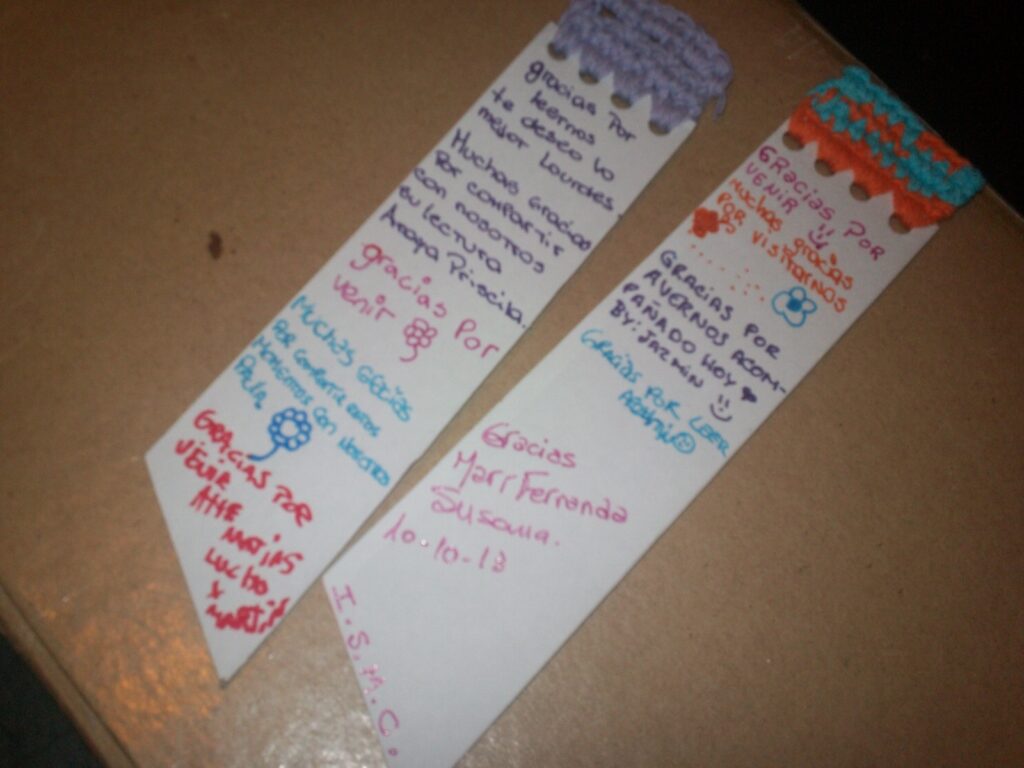 gracias Por
leernos
te deseo lo
mejor Lourdes.
Muchas Gracias
Por compartir
con nosotros
su lectura
Araya Priscila.
gracias Por
venir
Muchas GRACIAS
POR COMPARTIR ESTOS
MOMENTOS CON NOSOTROS
PAULA.
GRACIAS POR
VENIR
ATTE
MATIAS
LUCHO
Y
GRACIAS POR
VENIR
MUCHAS gracias
POR VISITARNOS
GRACIAS POR
AVERNOS ACOM-
PAÑADO HOY
BY: JAZMÍN
GRACIAS POR LEER
Gracias
Mari Fernanda
Susana.
10-10-13
I.S.M.C.